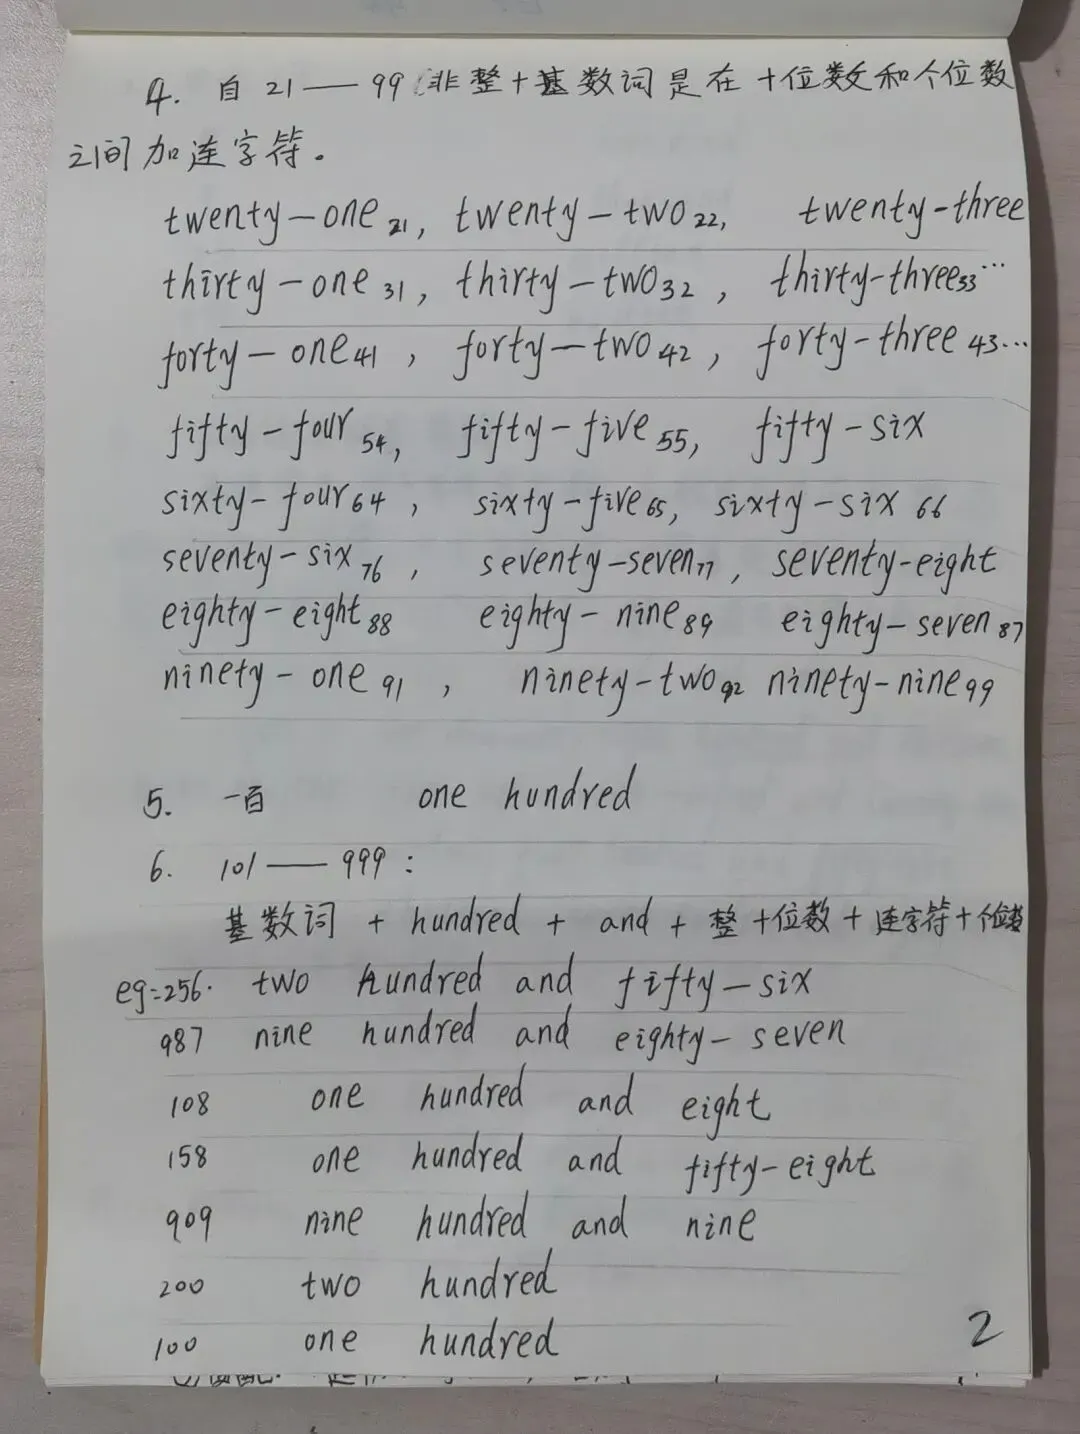 4. 自 21 —— 99 (非整十基数词是在十位数和个位数
之间加连字符。
twenty-one 21, twenty-two 22, twenty-three
thirty-one 31, thirty-two 32, thirty-three 33 ...
forty-one 41, forty-two 42, forty-three 43 ...
fifty-four 54, fifty-five 55, fifty-six
sixty-four 64, sixty-five 65, sixty-six 66
seventy-six 76, seventy-seven 77, seventy-eight
eighty-eight 88 eighty-nine 89 eighty-seven 87
ninety-one 91, ninety-two 92 ninety-nine 99
5. 一百 one hundred
6. 101 —— 999:
基数词 + hundred + and + 整十位数 + 连字符 + 个位数
eg: 256. two hundred and fifty-six
987 nine hundred and eighty-seven
108 one hundred and eight
158 one hundred and fifty-eight
909 nine hundred and nine
200 two hundred
100 one hundred
2